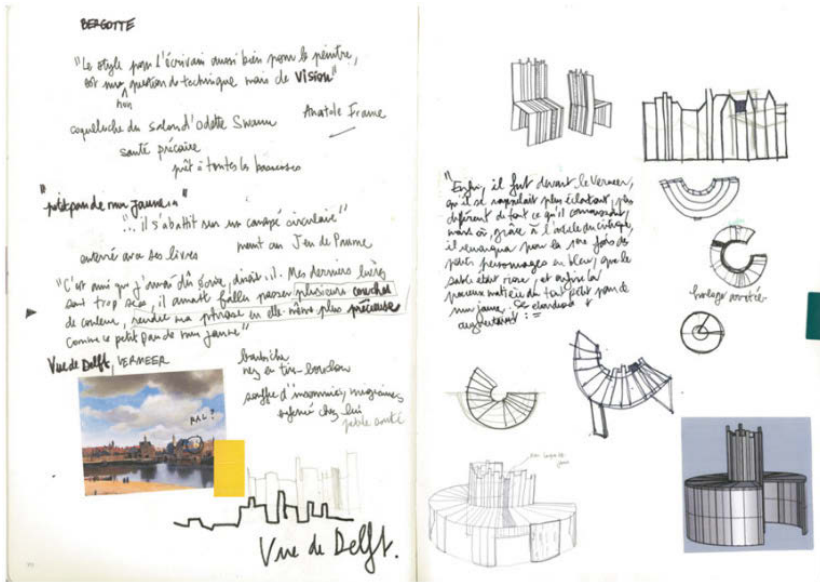 BERGOTTE
"Le style pour l'écrivain aussi bien pour le peintre,
est une question de technique mais de vision"
non
Anatole France
coqueluche du salon d'Odette Swann
santé précaire
prêt à toutes les bassesses
"petit pan de mur jaune"
"... il s'abattit sur un canapé circulaire"
meurt au Jeu de Paume
enterré avec ses livres
"C'est ainsi que j'aurais dû écrire, disait-il. Mes derniers livres
sont trop secs, il aurait fallu passer plusieurs couches
de couleur, rendre ma phrase en elle-même plus précieuse
comme ce petit pan de mur jaune"
Vue de Delft, VERMEER
barbiche
nez en tire-bouchon
souffre d'insomnies, migraines
enfermé chez lui
RAL?
Vue de Delft.
"Enfin, il fut devant le Vermeer,
qu'il se rappelait plus éclatant, plus
différent de tout ce qu'il connaissait,
mais où, grâce à l'article du critique,
il remarqua pour la 1ère fois des
petits personnages en bleu, que le
sable était rose, et enfin la
précieuse matière du tout petit pan de
mur jaune. Ses étourdissements
augmentaient
horloge arrêtée